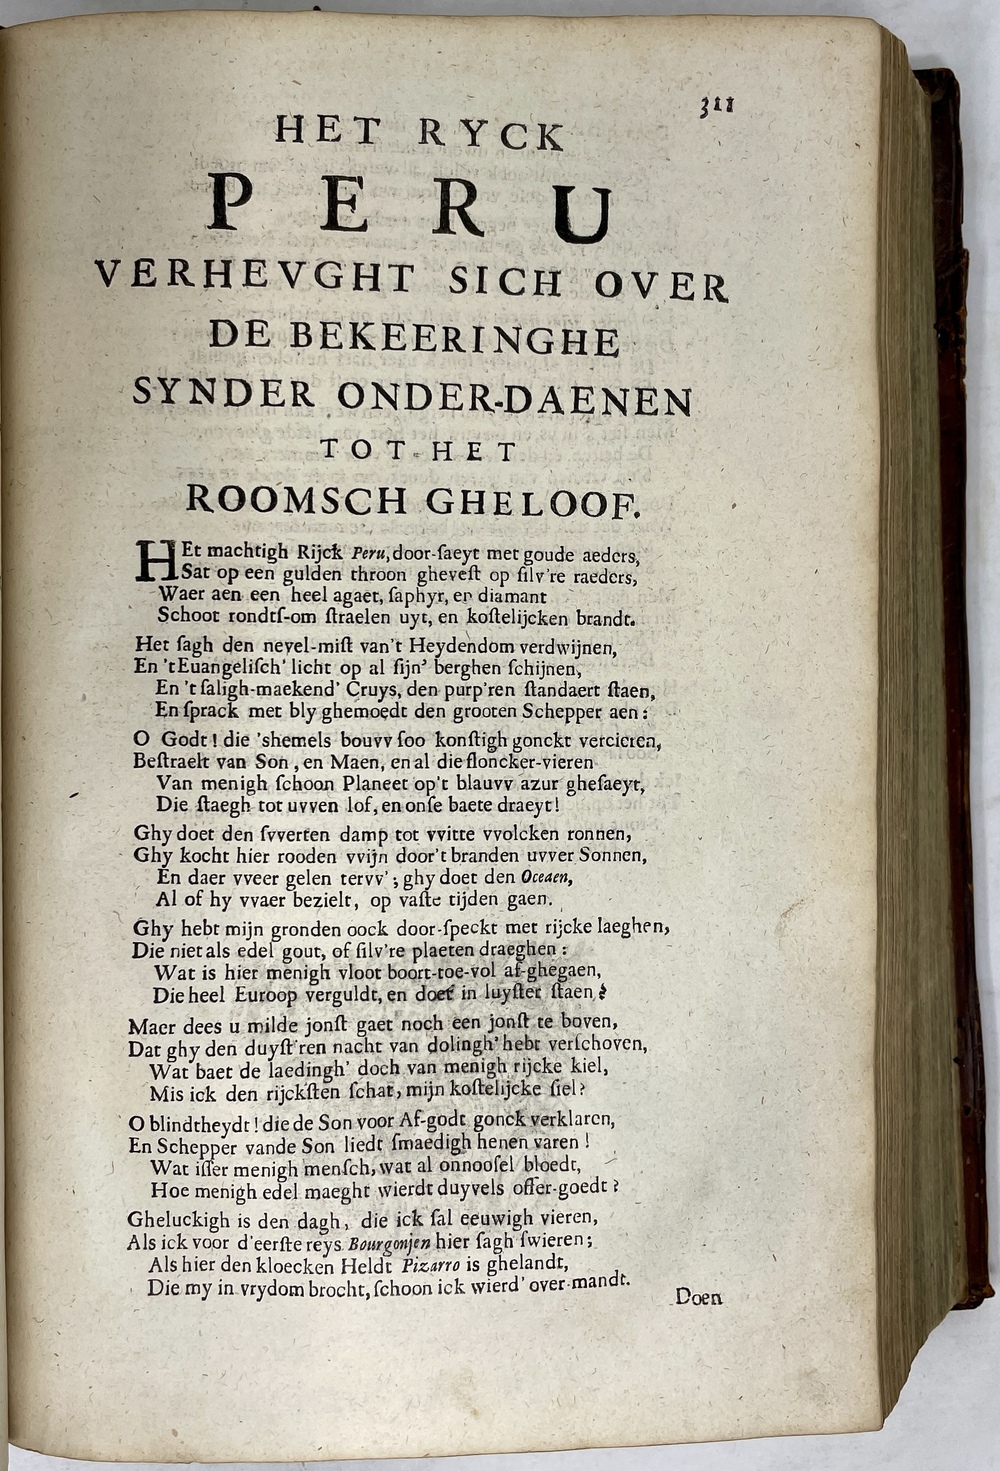 311
HET RYCK
PERU
VERHEVGHT SICH OVER
DE BEKEERINGHE
SYNDER ONDER-DAENEN
TOT HET
ROOMSCH GHELOOF.
HEt machtigh Rijck Peru, door-ſaeyt met goude aeders,
Sat op een gulden throon gheveſt op ſilv're raeders,
Waer aen een heel agaet, ſaphyr, en diamant
Schoot rondtſ-om ſtraelen uyt, en koſtelijcken brandt.
Het ſagh den nevel-miſt van't Heydendom verdwijnen,
En 't Euangeliſch' licht op al ſijn' berghen ſchijnen,
En 't ſaligh-maekend' Cruys, den purp'ren ſtandaert ſtaen,
En ſprack met bly ghemoedt den grooten Schepper aen:
O Godt! die 'shemels bouvv ſoo konſtigh gonckt vercieren,
Beſtraelt van Son, en Maen, en al die floncker-vieren
Van menigh ſchoon Planeet op't blauvv azur gheſaeyt,
Die ſtaegh tot uvven lof, en onſe baete draeyt!
Ghy doet den ſvverten damp tot vvitte vvolcken ronnen,
Ghy kocht hier rooden vvijn door't branden uvver Sonnen,
En daer vveer gelen tervv'; ghy doet den Oceaen,
Al of hy vvaer bezielt, op vaſte tijden gaen.
Ghy hebt mijn gronden oock door-ſpeckt met rijcke laeghen,
Die niet als edel gout, of ſilv're plaeten draeghen:
Wat is hier menigh vloot boort-toe-vol af-ghegaen,
Die heel Euroop verguldt, en doet in luyſter ſtaen?
Maer dees u milde jonſt gaet noch een jonſt te boven,
Dat ghy den duyſt'ren nacht van dolingh' hebt verſchoven,
Wat baet de laedingh' doch van menigh rijcke kiel,
Mis ick den rijckſten ſchat, mijn koſtelijcke ſiel?
O blindtheydt! die de Son voor Af-godt gonck verklaren,
En Schepper vande Son liedt ſmaedigh henen varen!
Wat iſſer menigh menſch, wat al onnooſel bloedt,
Hoe menigh edel maeght wierdt duyvels offer-goedt?
Gheluckigh is den dagh, die ick ſal eeuwigh vieren,
Als ick voor d'eerſte reys Bourgonjen hier ſagh ſwieren;
Als hier den kloecken Heldt Pizarro is ghelandt,
Die my in vrydom brocht, ſchoon ick wierd' over-mandt.
Doen